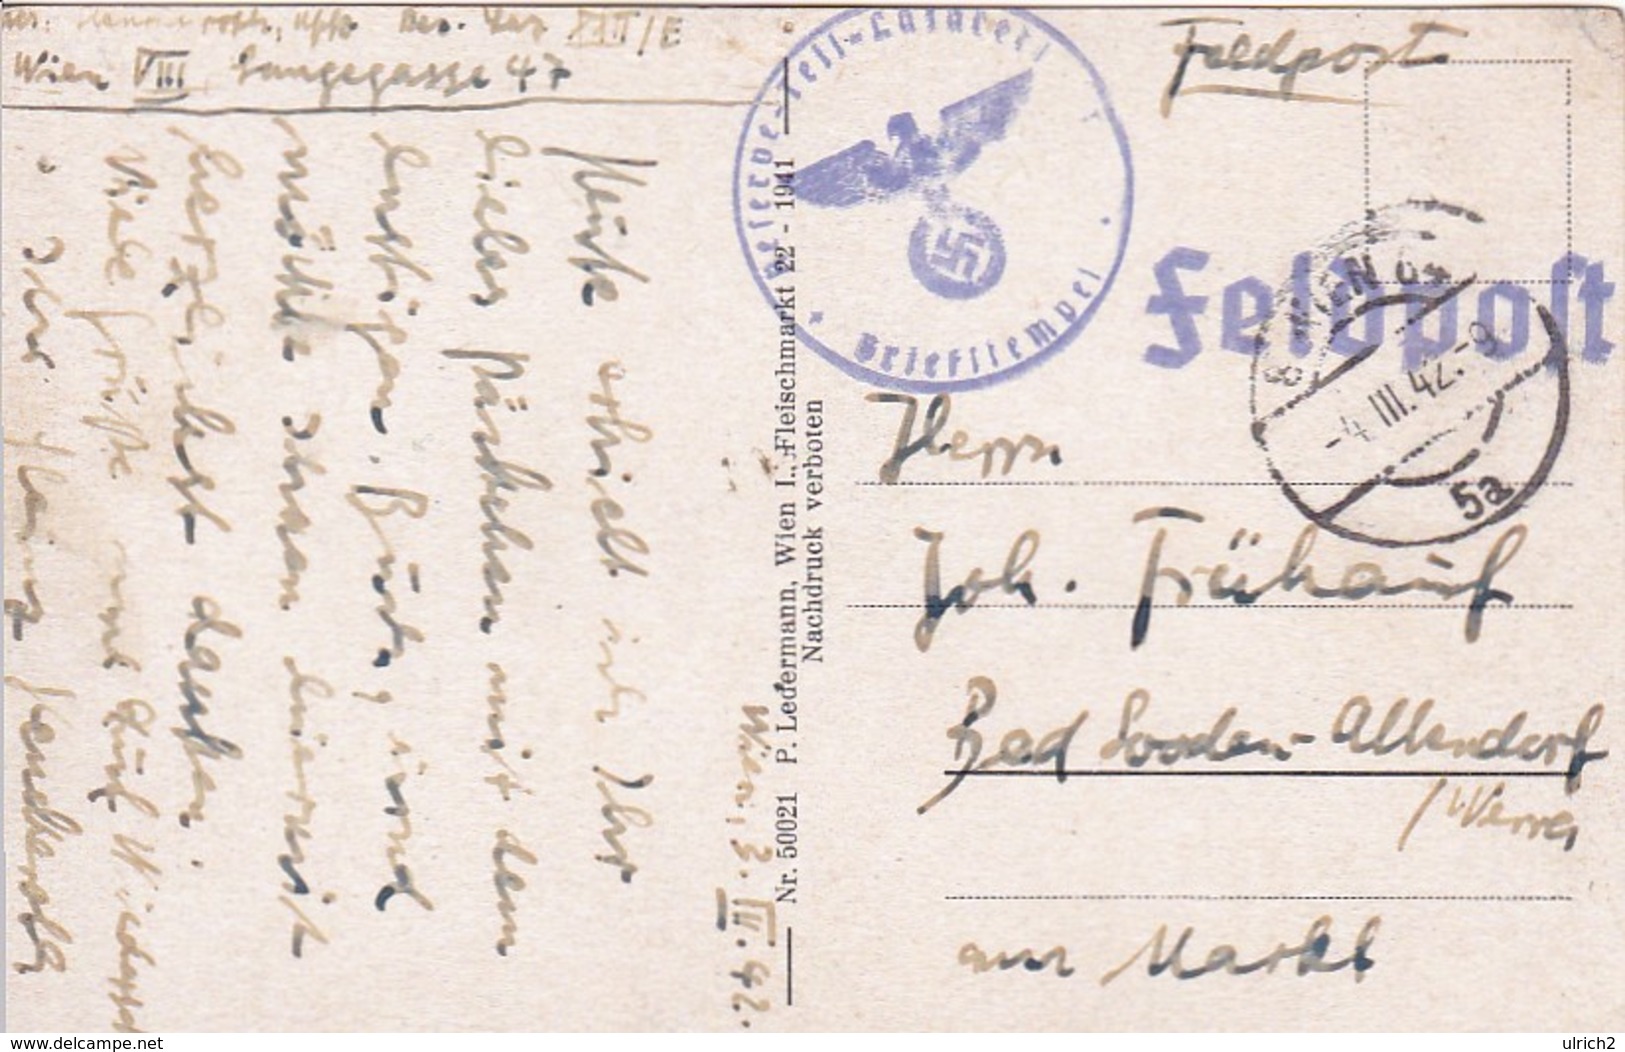 Wien VIII, Langegasse 47
Heute erhielt ich Ihr
liebes Päckchen mit dem
lustigen Buch, und
möchte Ihnen hiermit
herzlichst danken.
Viele Grüße und Auf Wiedersehn
Ihr Heinz
Wien, 3. III. 42.
Nr. 50021 P. Ledermann, Wien I., Fleischmarkt 22 - 1941
Nachdruck verboten
Reserve-Teil-Lazarett
Briefstempel
Feldpost
Feldpost
WIEN
-4.III.42.-9
5a
Herrn
Joh. Frühauf
Bad Sooden-Allendorf
/Werra
am Markt
www.delcampe.net
ulrich2